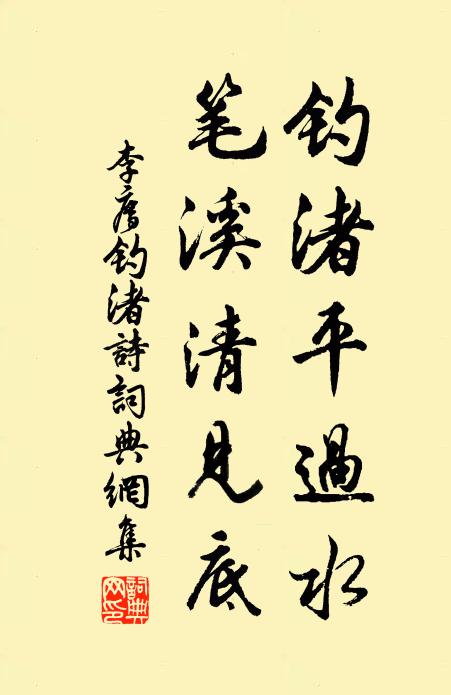 钓渚平過水
笔溪清見底
李廌钓渚詩詞典網集
詞典
网印